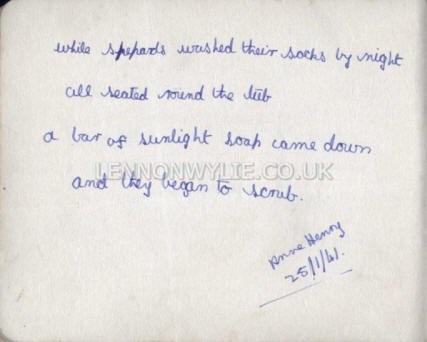 while shepards washed their socks by night
all seated round the tub
a bar of sunlight soap came down
LENNONWYLIE.CO.UK
and they began to scrub.
Anne Henry
25/1/41.